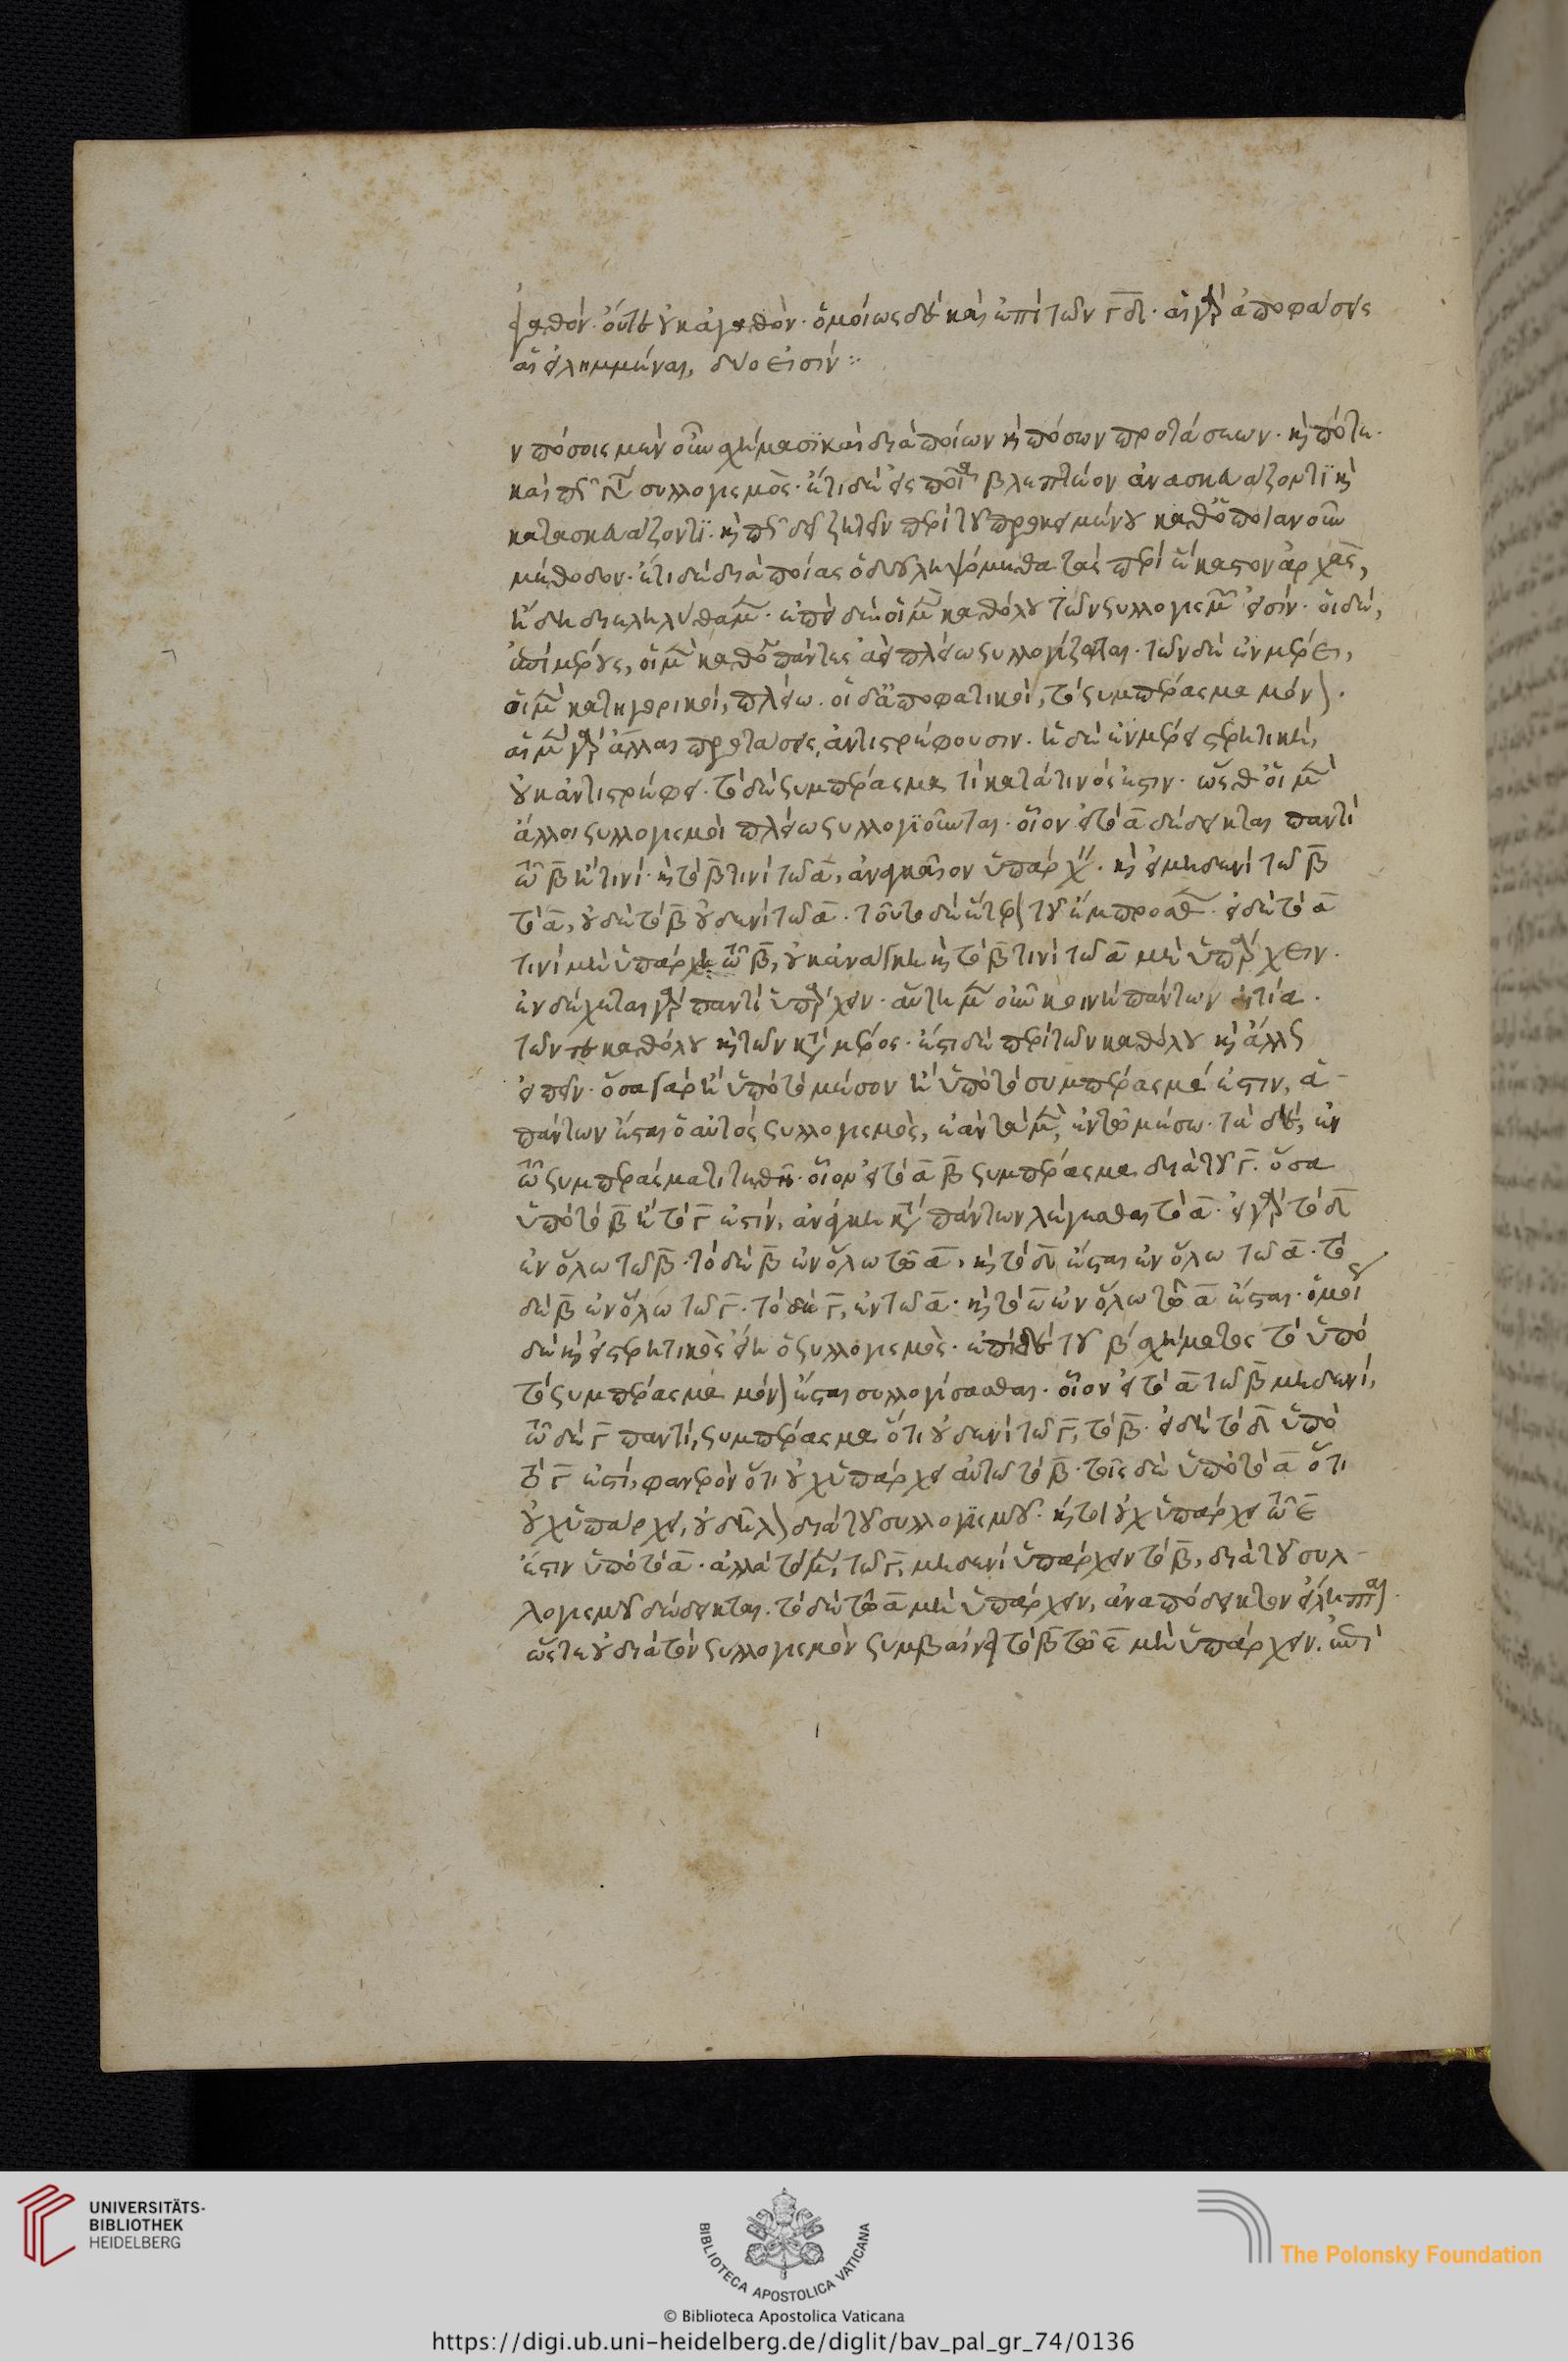 γαθόν· οὔτε οὐκ ἀγαθόν· ὁμοίως δὲ καὶ ἐπὶ τῶν γ̅ δ̅· αἱ γὰρ ἀποφάσεις
αἱ εἰλημμέναι, δύο εἰσίν :
ν πόσοις μὲν οὖν σχήμασι καὶ διὰ ποίων κ̀ πόσων προτάσεων· κ̀ πότε·
καὶ πῶς γίνεται συλλογισμός· ἔτι δὲ εἰς ποῖα βλεπτέον ἀνασκευάζοντι κ̀
κατασκευάζοντι· κ̀ πῶς δεῖ ζητεῖν περὶ τοῦ προκειμένου καθ' ὁποίαν οὖν
μέθοδον· ἔτι δὲ διὰ ποίας ὁδοῦ ληψόμεθα τὰς περὶ ἕκαστον ἀρχὰς,
ἤδη διεληλύθαμεν· ἐπεὶ δὲ οἱ μὲν καθόλου τῶν συλλογισμῶν εἰσίν· οἱ δέ,
ἐπὶ μέρους, οἱ μὲν καθόλου πάντες ἀεὶ πλείω συλλογίζεται· τῶν δὲ ἐν μέρει,
οἱ μὲν κατηγορικοί, πλείω· οἱ δ' ἀποφατικοί, τὸ συμπέρασμα μόνον·
αἱ μὲν γὰρ ἄλλαι προτάσεις ἀντιστρέφουσιν· ἡ δὲ ἐν μέρει στερητική,
οὐκ ἀντιστρέφει· τὸ δὲ συμπέρασμα τὶ κατὰ τινός ἐστιν· ὥσθ' οἱ μὲν
ἄλλοι συλλογισμοὶ πλείω συλλογιοῦνται· οἷον εἰ τὸ α̅ δέδεικται παντὶ
τῷ β̅ ἢ τινί· κ̀ τὸ β̅ τινὶ τῷ α̅, ἀναγκαῖον ὑπάρχειν· κ̀ εἰ μηδενὶ τῷ β̅
τὸ α̅, οὐδὲ τὸ β̅ οὐδενὶ τῷ α̅· τοῦτο δὲ ἕτερον τοῦ ἔμπροσθεν· εἰ δὲ τὸ α̅
τινὶ μὴ ὑπάρχει τῷ β̅, οὐκ ἀνάγκη κ̀ τὸ β̅ τινὶ τῷ α̅ μὴ ὑπάρχειν·
ἐνδέχεται γὰρ παντὶ ὑπάρχειν· αὕτη μὲν οὖν κοινὴ πάντων αἰτία·
τῶν τε καθόλου κ̀ τῶν κατὰ μέρος· ἔστι δὲ περὶ τῶν καθόλου κ̀ ἄλλως
εἰπεῖν· ὅσα γὰρ ἢ ὑπὸ τὸ μέσον ἢ ὑπὸ τὸ συμπέρασμά ἐστιν, ἁ-
πάντων ἔσται ὁ αὐτὸς συλλογισμὸς, ἐὰν τὰ μὲν, ἐν τῷ μέσω· τὰ δὲ, ἐν
τῷ συμπεράσματι τεθῇ· οἷον εἰ τὸ α̅ β̅ συμπέρασμα διὰ τοῦ γ̅· ὅσα
ὑπὸ τὸ β̅ ἢ τὸ γ̅ ἐστίν, ἀνάγκη κατὰ πάντων λέγεσθαι τὸ α̅· εἰ γὰρ τὸ δ̅
ἐν ὅλω τῷ β̅· τὸ δὲ β̅ ἐν ὅλω τῷ α̅, κ̀ τὸ δ̅ ἔσται ἐν ὅλω τῷ α̅· τὸ
δὲ β̅ ἐν ὅλω τῷ γ̅· τὸ δὲ γ̅, ἐν τῷ α̅· κ̀ τὸ ε̅ ἐν ὅλω τῷ α̅ ἔσται· ὁμοίως
δὲ κ̀ εἰ στερητικὸς εἴη ὁ συλλογισμὸς· ἐπὶ δὲ τοῦ β´ σχήματος τὸ ὑπὸ
τὸ συμπέρασμα μόνον ἔσται συλλογίσασθαι· οἷον εἰ τὸ α̅ τῷ β̅ μηδενί,
τῷ δὲ γ̅ παντί, συμπέρασμα ὅτι οὐδενὶ τῷ γ̅, τὸ β̅· εἰ δὲ τὸ δ̅ ὑπὸ
τὸ γ̅ ἐστί, φανερὸν ὅτι οὐχ ὑπάρχει αὐτῷ τὸ β̅· τοῖς δὲ ὑπὸ τὸ α̅ ὅτι
οὐχ ὑπάρχει, οὐ δῆλον διὰ τοῦ συλλογισμοῦ· καίτοι οὐχ ὑπάρχει τῷ ε̅
ἔστιν ὑπὸ τὸ α̅· ἀλλὰ τὸ μὲν, τῷ γ̅, μηδενὶ ὑπάρχειν τὸ β̅, διὰ τοῦ συλ-
λογισμοῦ δέδεικται· τὸ δὲ τῷ α̅ μὴ ὑπάρχειν, ἀναπόδεικτον εἴληπται·
ὥστε οὐ διὰ τὸν συλλογισμὸν συμβαίνει τὸ β̅ τῷ ε̅ μὴ ὑπάρχειν. ἐπὶ
UNIVERSITÄTS-
BIBLIOTHEK
HEIDELBERG
BIBLIOTECA APOSTOLICA VATICANA
The Polonsky Foundation
© Biblioteca Apostolica Vaticana
https://digi.ub.uni-heidelberg.de/diglit/bav_pal_gr_74/0136